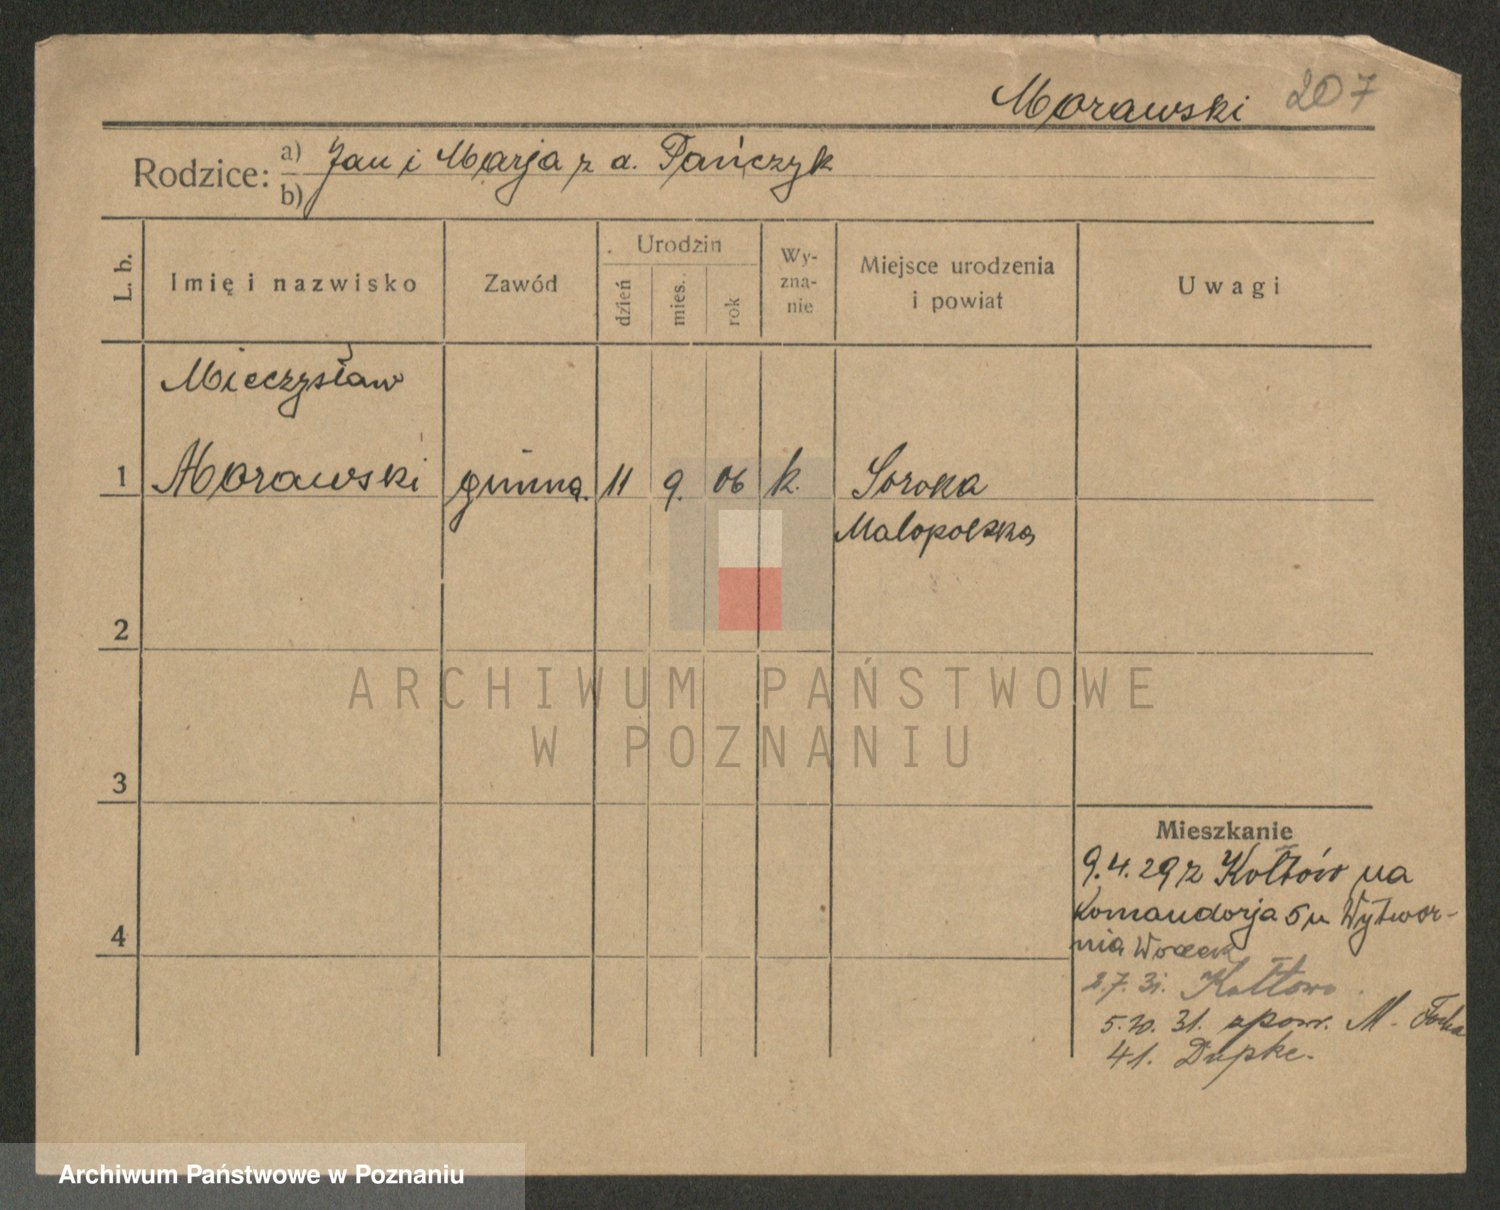 Morawski 207
Rodzice: a) Jan i Marja z d. Pańczyk
b)
L. b.
Imię i nazwisko
Zawód
Urodzin
dzień
mies.
rok
Wy-
zna-
nie
Miejsce urodzenia
i powiat
Uwagi
Mieczysław
1 Morawski gimna. 11 9. 06 k. Soroka
Małopolska
2
3
4
Mieszkanie
9.4.29 z Kołtów na
Komandorja 5 u Wytwor-
nia Wódek
2.7.31. Kołtowo
5.10.31. spow. M. Focha
41. Dupke.
ARCHIWUM PAŃSTWOWE
W POZNANIU
Archiwum Państwowe w Poznaniu